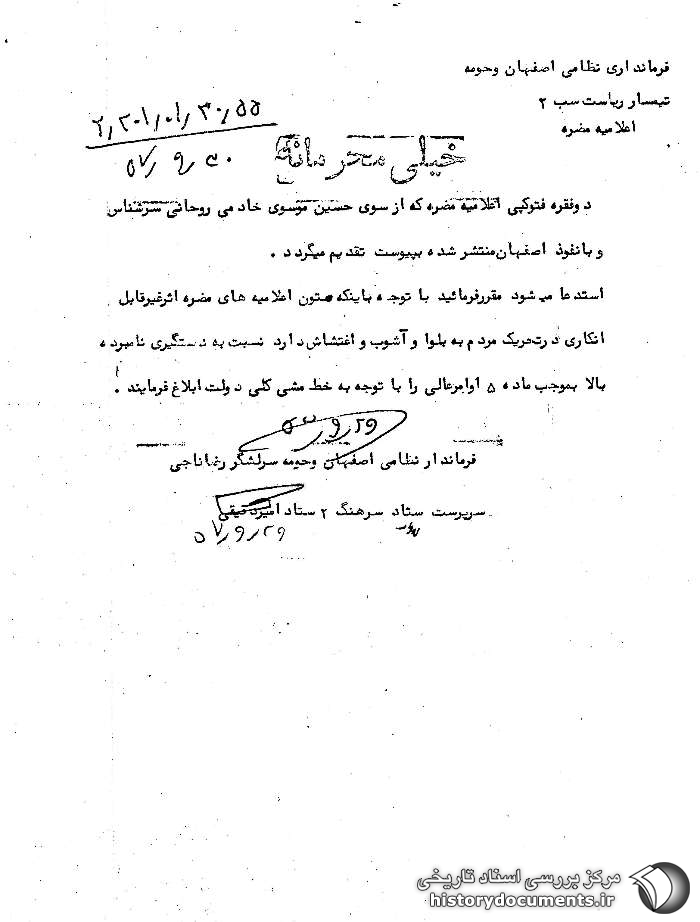 فرمانداری نظامی اصفهان وحومه
تیمسار ریاست سب ۲
اعلامیه مضره
۲٫۲۰۱٫۰۱٫۳۰٫۵۵
۵۷٫۹٫۳۰
خیلی محرمانه
دوفقره فتوکپی اعلامیه مضره که از سوی حسین موسوی خادمی روحانی سرشناس
و بانفوذ اصفهان منتشر شده بپیوست تقدیم میگردد .
استدعا میشود مقررفرمائید با توجه باینکه متون اعلامیه های مضره اثرغیرقابل
انکاری درتحریک مردم به بلوا و آشوب و اغتشاش دارد نسبت به دستگیری نامبرده
بالا بموجب ماده ۵ اوامرعالی را با توجه به خط مشی کلی دولت ابلاغ فرمایند .
فرماندار نظامی اصفهان وحومه سرلشگر رضا ناجی
سرپرست ستاد سرهنگ ۲ ستاد
۵۷٫۹٫۲۹
مرکز بررسی اسناد تاریخی
historydocuments.ir